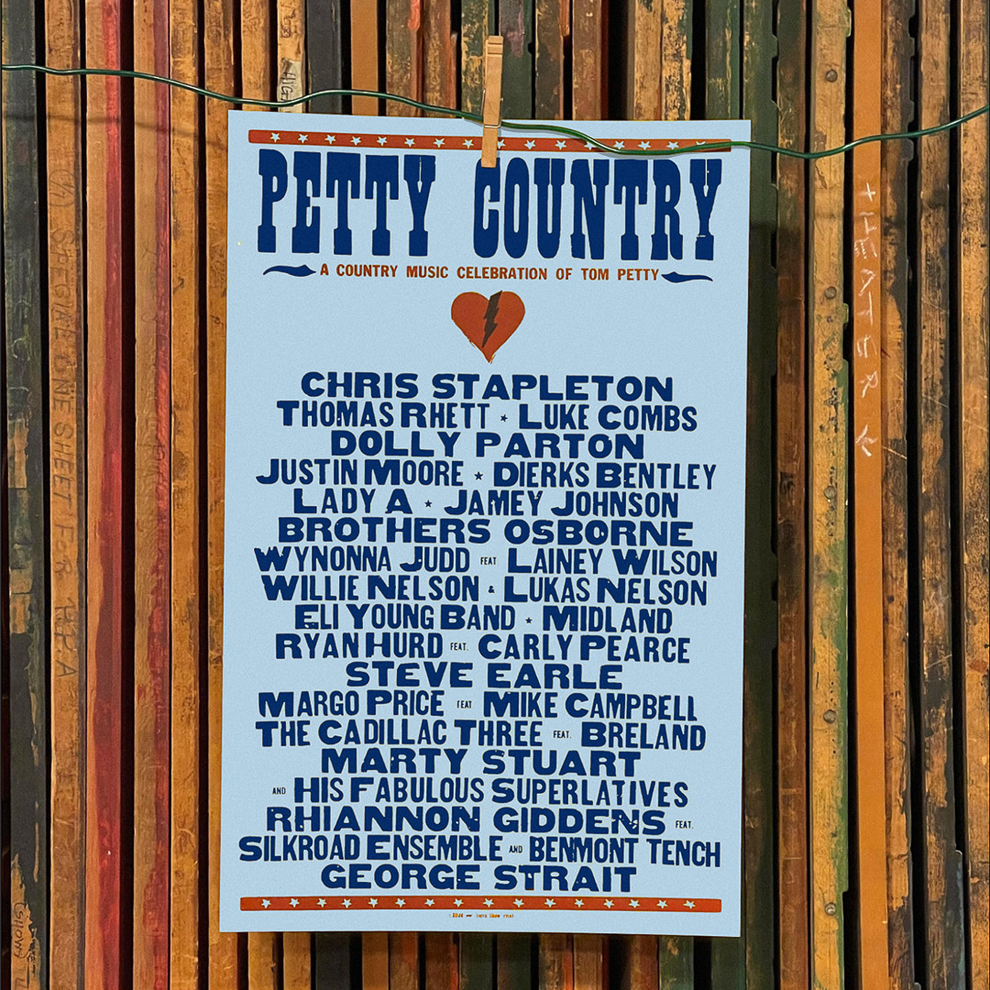 PETTY COUNTRY
A COUNTRY MUSIC CELEBRATION OF TOM PETTY
CHRIS STAPLETON
THOMAS RHETT ★ LUKE COMBS
DOLLY PARTON
JUSTIN MOORE ★ DIERKS BENTLEY
LADY A ★ JAMEY JOHNSON
BROTHERS OSBORNE
WYNONNA JUDD FEAT LAINEY WILSON
WILLIE NELSON & LUKAS NELSON
ELI YOUNG BAND ★ MIDLAND
RYAN HURD FEAT. CARLY PEARCE
STEVE EARLE
MARGO PRICE FEAT MIKE CAMPBELL
THE CADILLAC THREE FEAT. BRELAND
MARTY STUART
AND HIS FABULOUS SUPERLATIVES
RHIANNON GIDDENS FEAT.
SILKROAD ENSEMBLE AND BENMONT TENCH
GEORGE STRAIT
THEATER
SHEET FOR